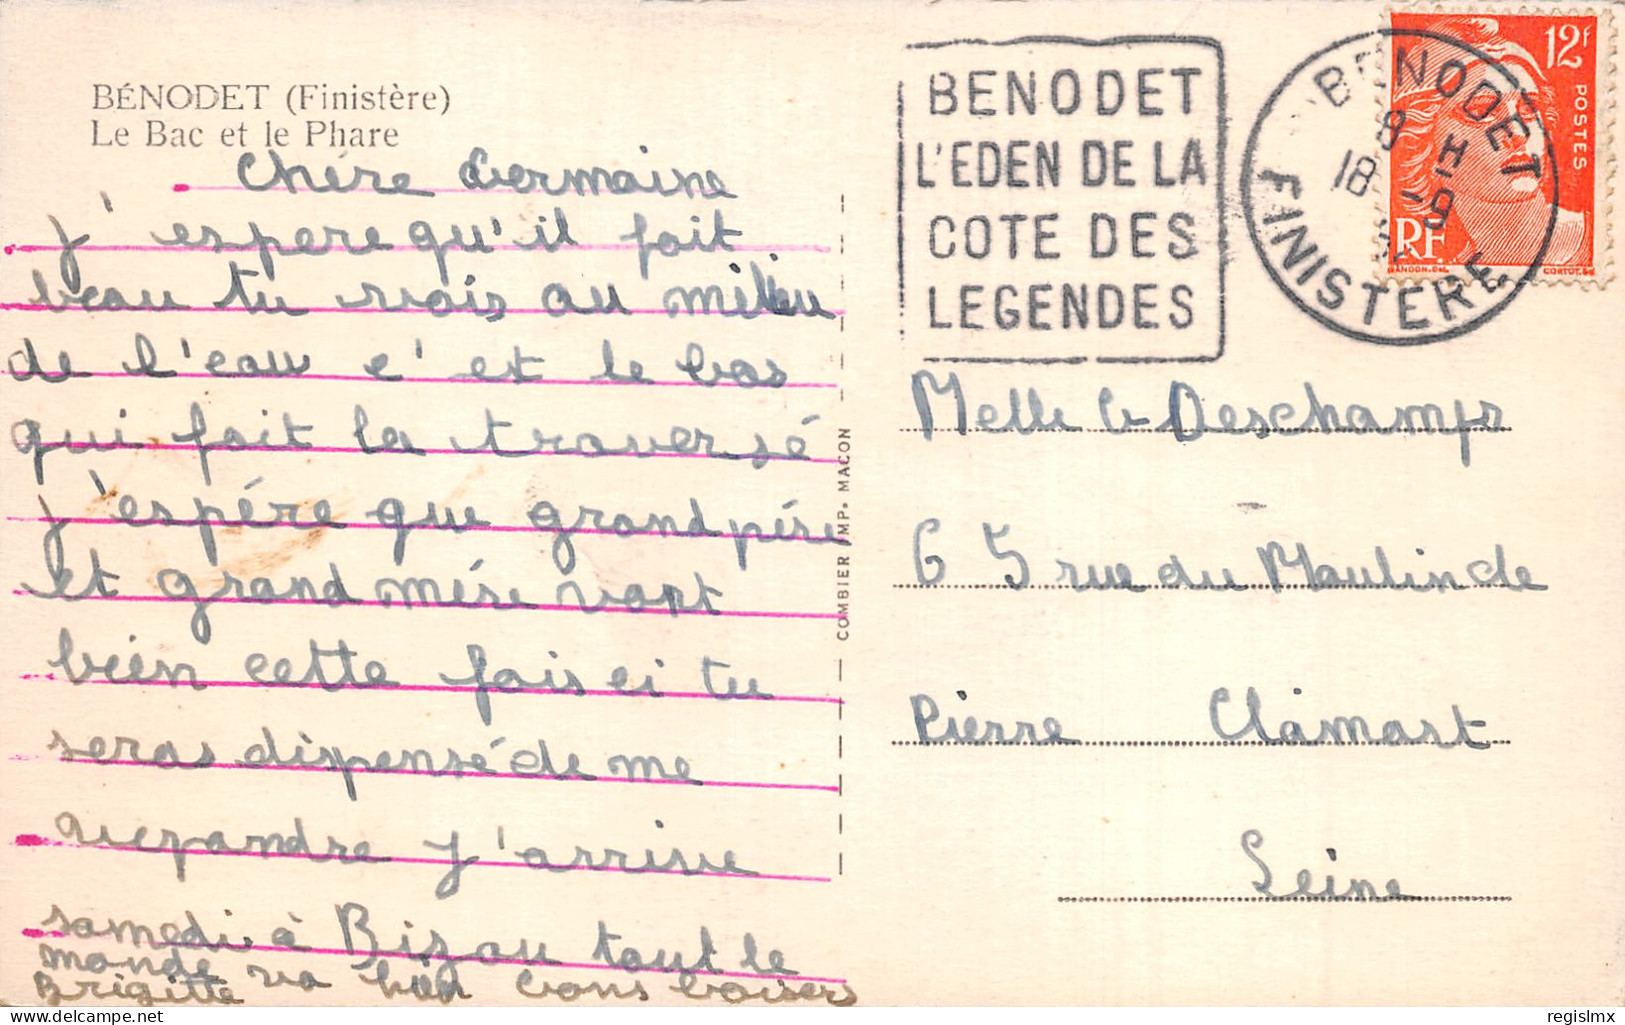 BÉNODET (Finistère)
Le Bac et le Phare
Chére Germaine
j'espere qu'il fait
beau tu vois au milieu
de l'eau c'et le bas
qui fait la traversé
j'espére que grand pére
et grand mére vont
bien cette fois ci tu
seras dispensé de me
repondre j'arrive
samedi à Bizou tout le
monde va bien bons baisers
Brigitte
COMBIER IMP. MACON
BENODET
L'EDEN DE LA
COTE DES
LEGENDES
BENODET
8 H
18 -9
FINISTERE
12F
POSTES
RF
GANDON.DEL.
CORTOT.SC
Melle G Deschamps
65 rue du Moulin de
Pierre Clamart
Seine
regislmx
delcampe.net